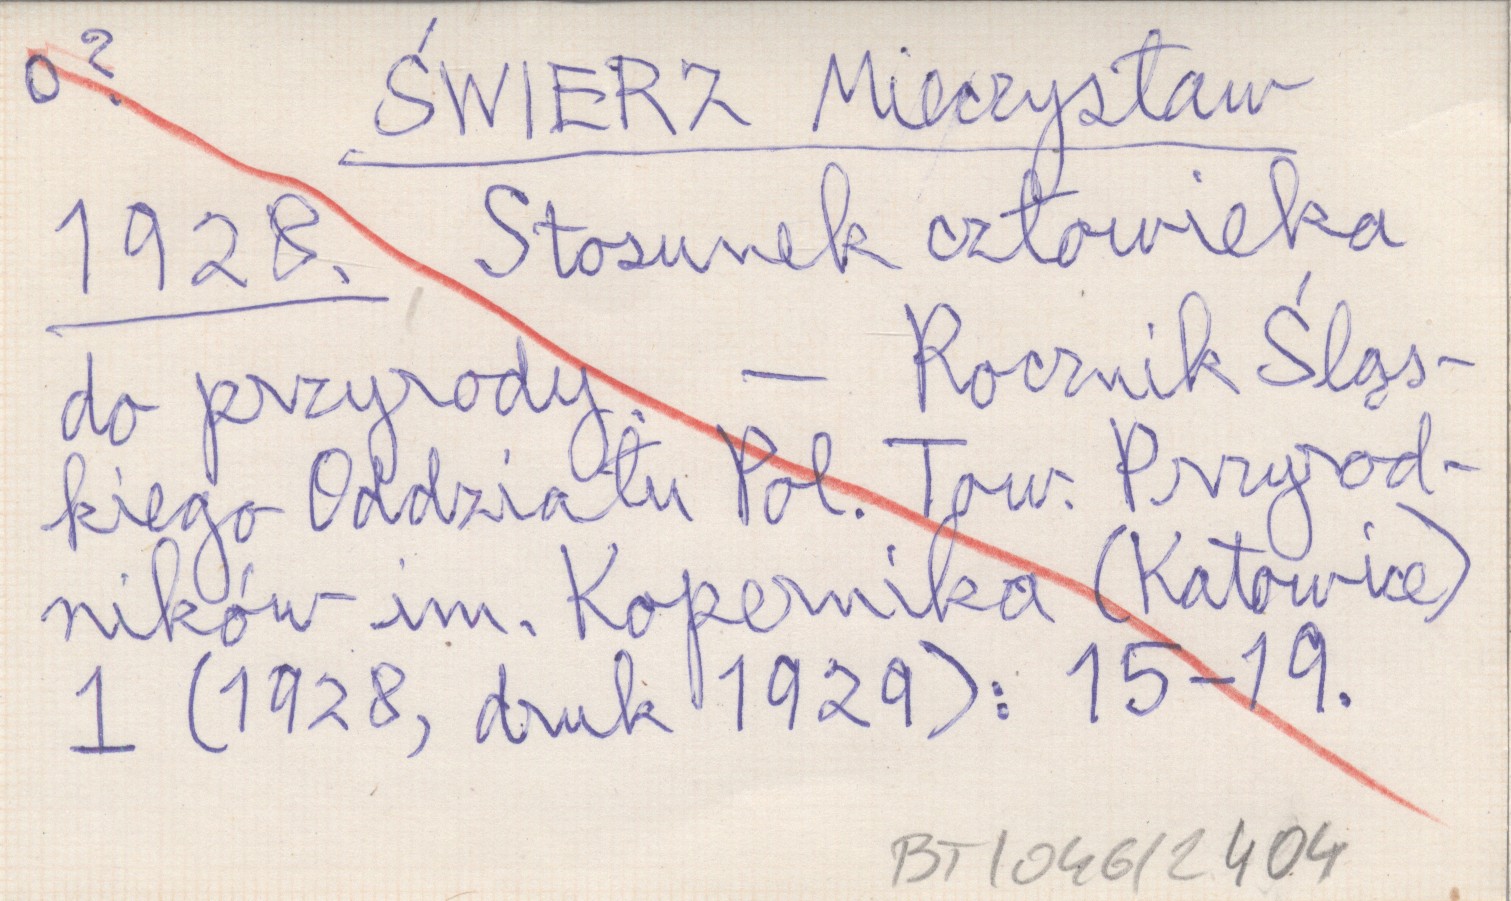 o?
ŚWIERZ Mieczysław
1928. Stosunek człowieka
do przyrody. — Rocznik Śląs-
kiego Oddziału Pol. Tow. Przyrod-
ników im. Kopernika (Katowice)
1 (1928, druk 1929): 15-19.
BT/046/2404